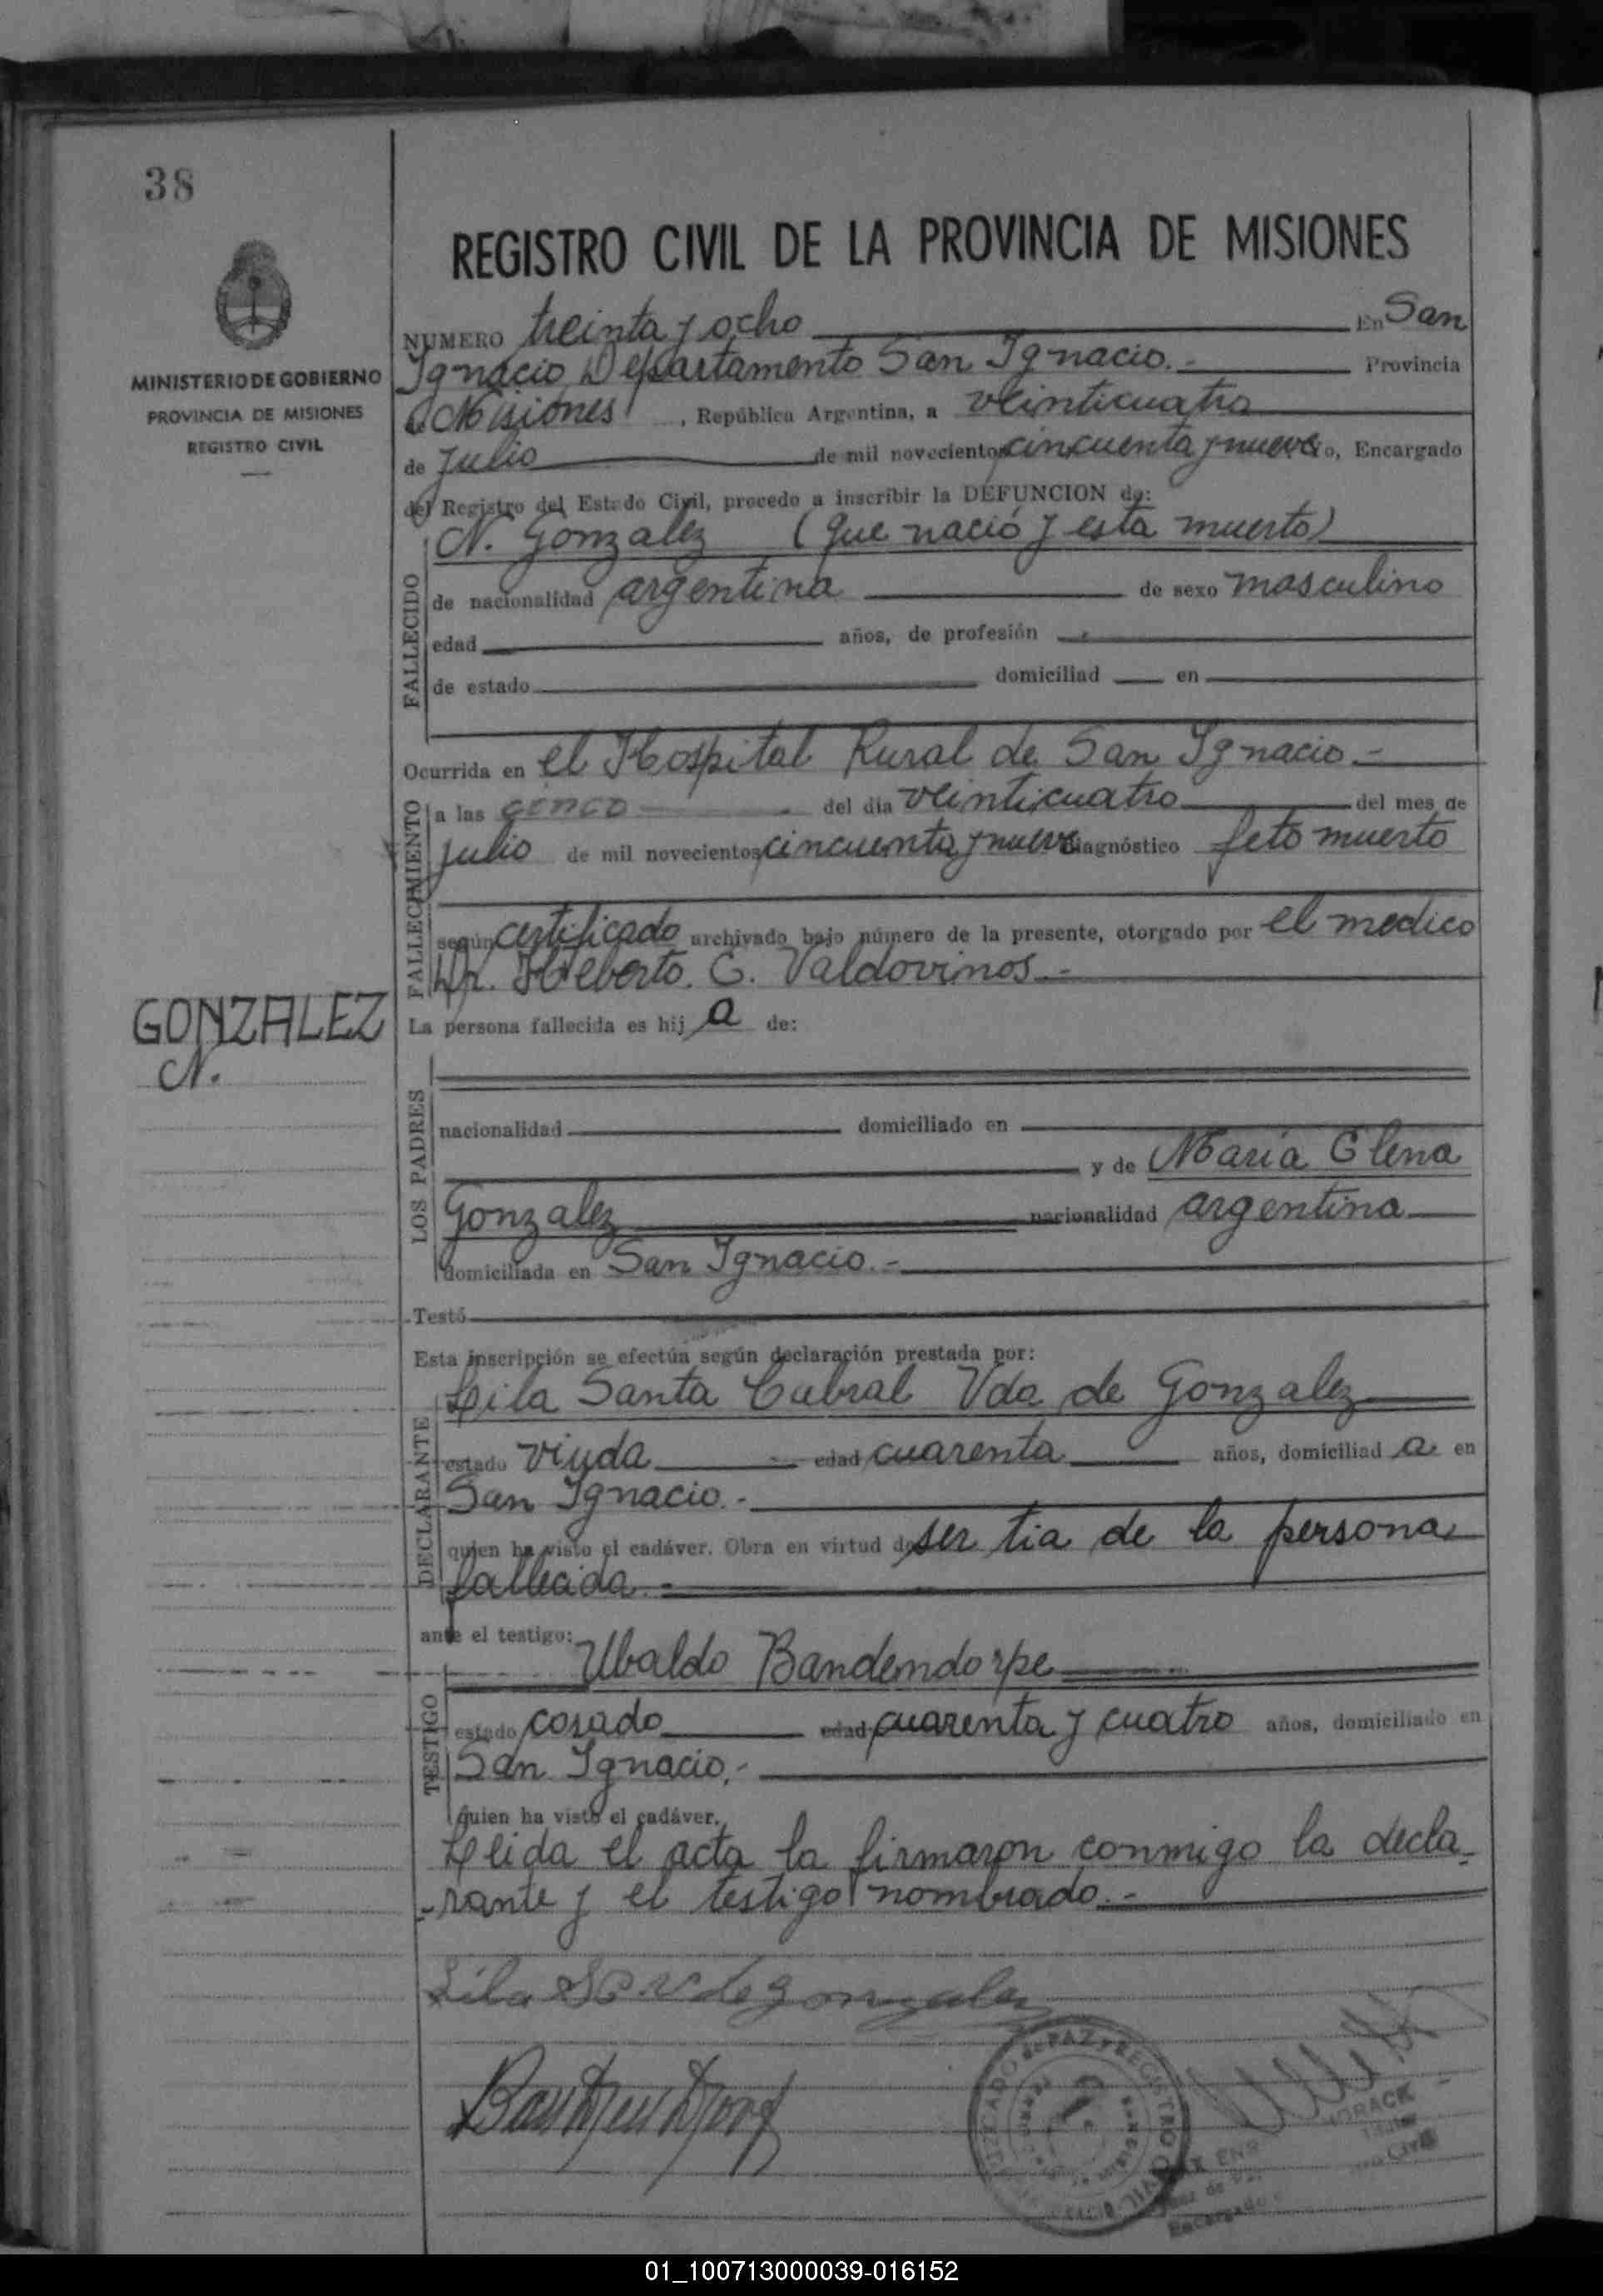 38
REGISTRO CIVIL DE LA PROVINCIA DE MISIONES
MINISTERIO DE GOBIERNO
PROVINCIA DE MISIONES
REGISTRO CIVIL
NUMERO treinta y ocho En San
Ignacio Departamento San Ignacio.- Provincia
de Misiones, República Argentina, a veinticuatro
de Julio de mil novecientos cincuenta y nueve yo, Encargado
del Registro del Estado Civil, procedo a inscribir la DEFUNCION de:
N. Gonzalez (que nació y esta muerto)
FALLECIDO
de nacionalidad argentina de sexo masculino
edad años, de profesión
de estado domiciliad en
Ocurrida en el Hospital Rural de San Ignacio.-
FALLECIMIENTO
a las cinco del día veinticuatro del mes de
julio de mil novecientos cincuenta y nueve diagnóstico feto muerto
según certificado archivado bajo número de la presente, otorgado por el medico
Dr. Heberto. C. Valdovinos.-
GONZALEZ
N.
La persona fallecida es hij a de:
LOS PADRES
nacionalidad domiciliado en
y de Maria Elena
Gonzalez nacionalidad argentina
domiciliada en San Ignacio.-
Testó
Esta inscripción se efectúa según declaración prestada por:
DECLARANTE
Lila Santa Cabral Vda de Gonzalez
estado viuda edad cuarenta años, domiciliad a en
San Ignacio.-
quien ha visto el cadáver. Obra en virtud de ser tia de la persona
fallecida.-
ante el testigo:
TESTIGO
Ubaldo Bandendorpe
estado casado edad cuarenta y cuatro años, domiciliado en
San Ignacio.-
quien ha visto el cadáver.
Leida el acta la firmaron conmigo la decla-
-rante y el testigo nombrado.-
Lila S C V de Gonzalez
JUZGADO de PAZ y REGISTRO CIVIL
HORACK
Encargado
01_100713000039-016152